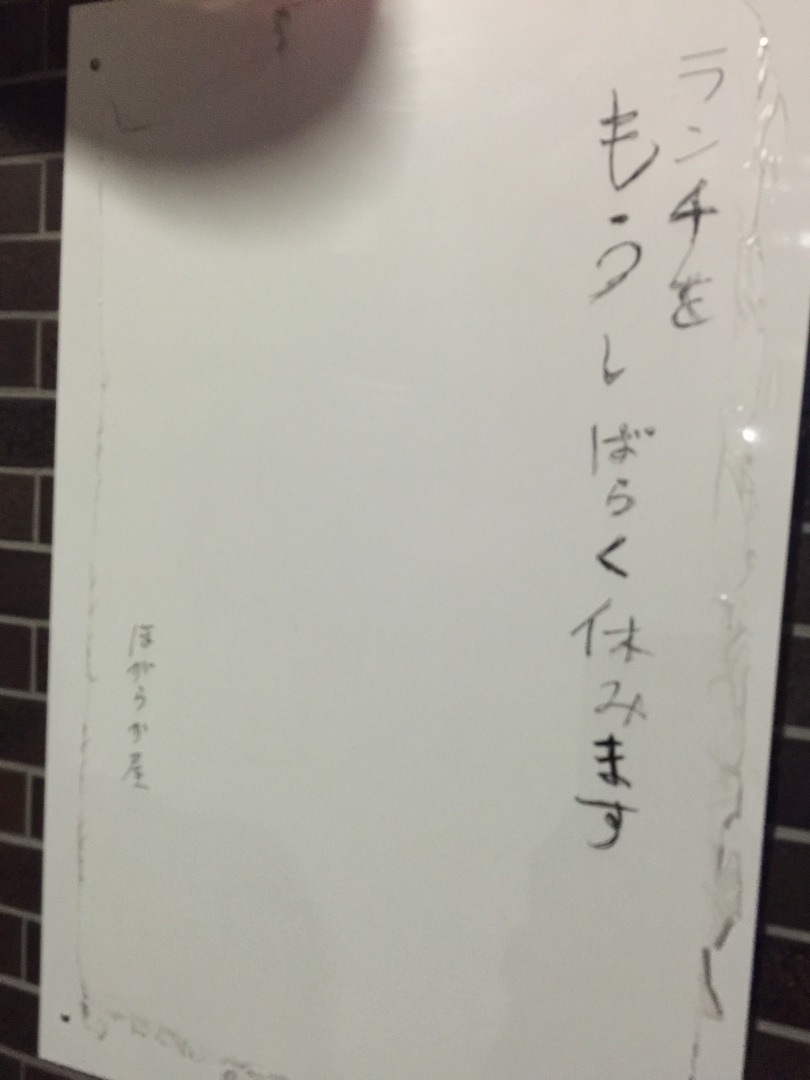 ランチを
もうしばらく休みます
ほがらか屋